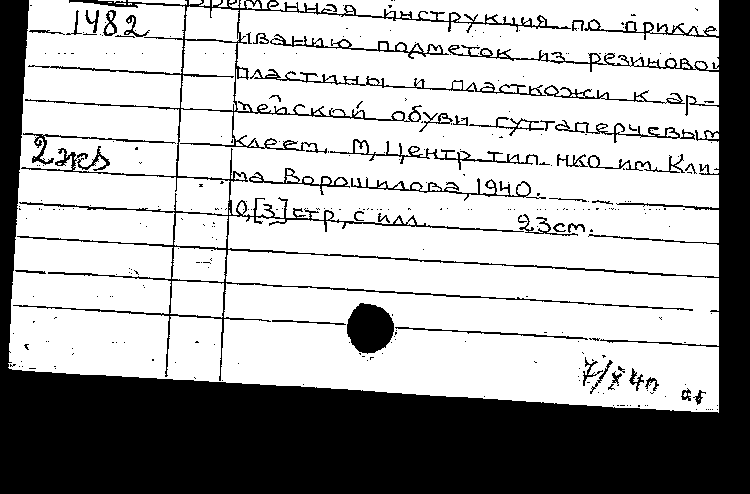 Временная инструкция по прикле
1482
иванию подметок из резиновой
пластины и пласткожи к ар-
мейской обуви гуттаперчевым
клеем. М, Центр. тип. НКО им. Кли-
2 экз
ма Ворошилова, 1940.
10,[3] стр., с илл. 23см.